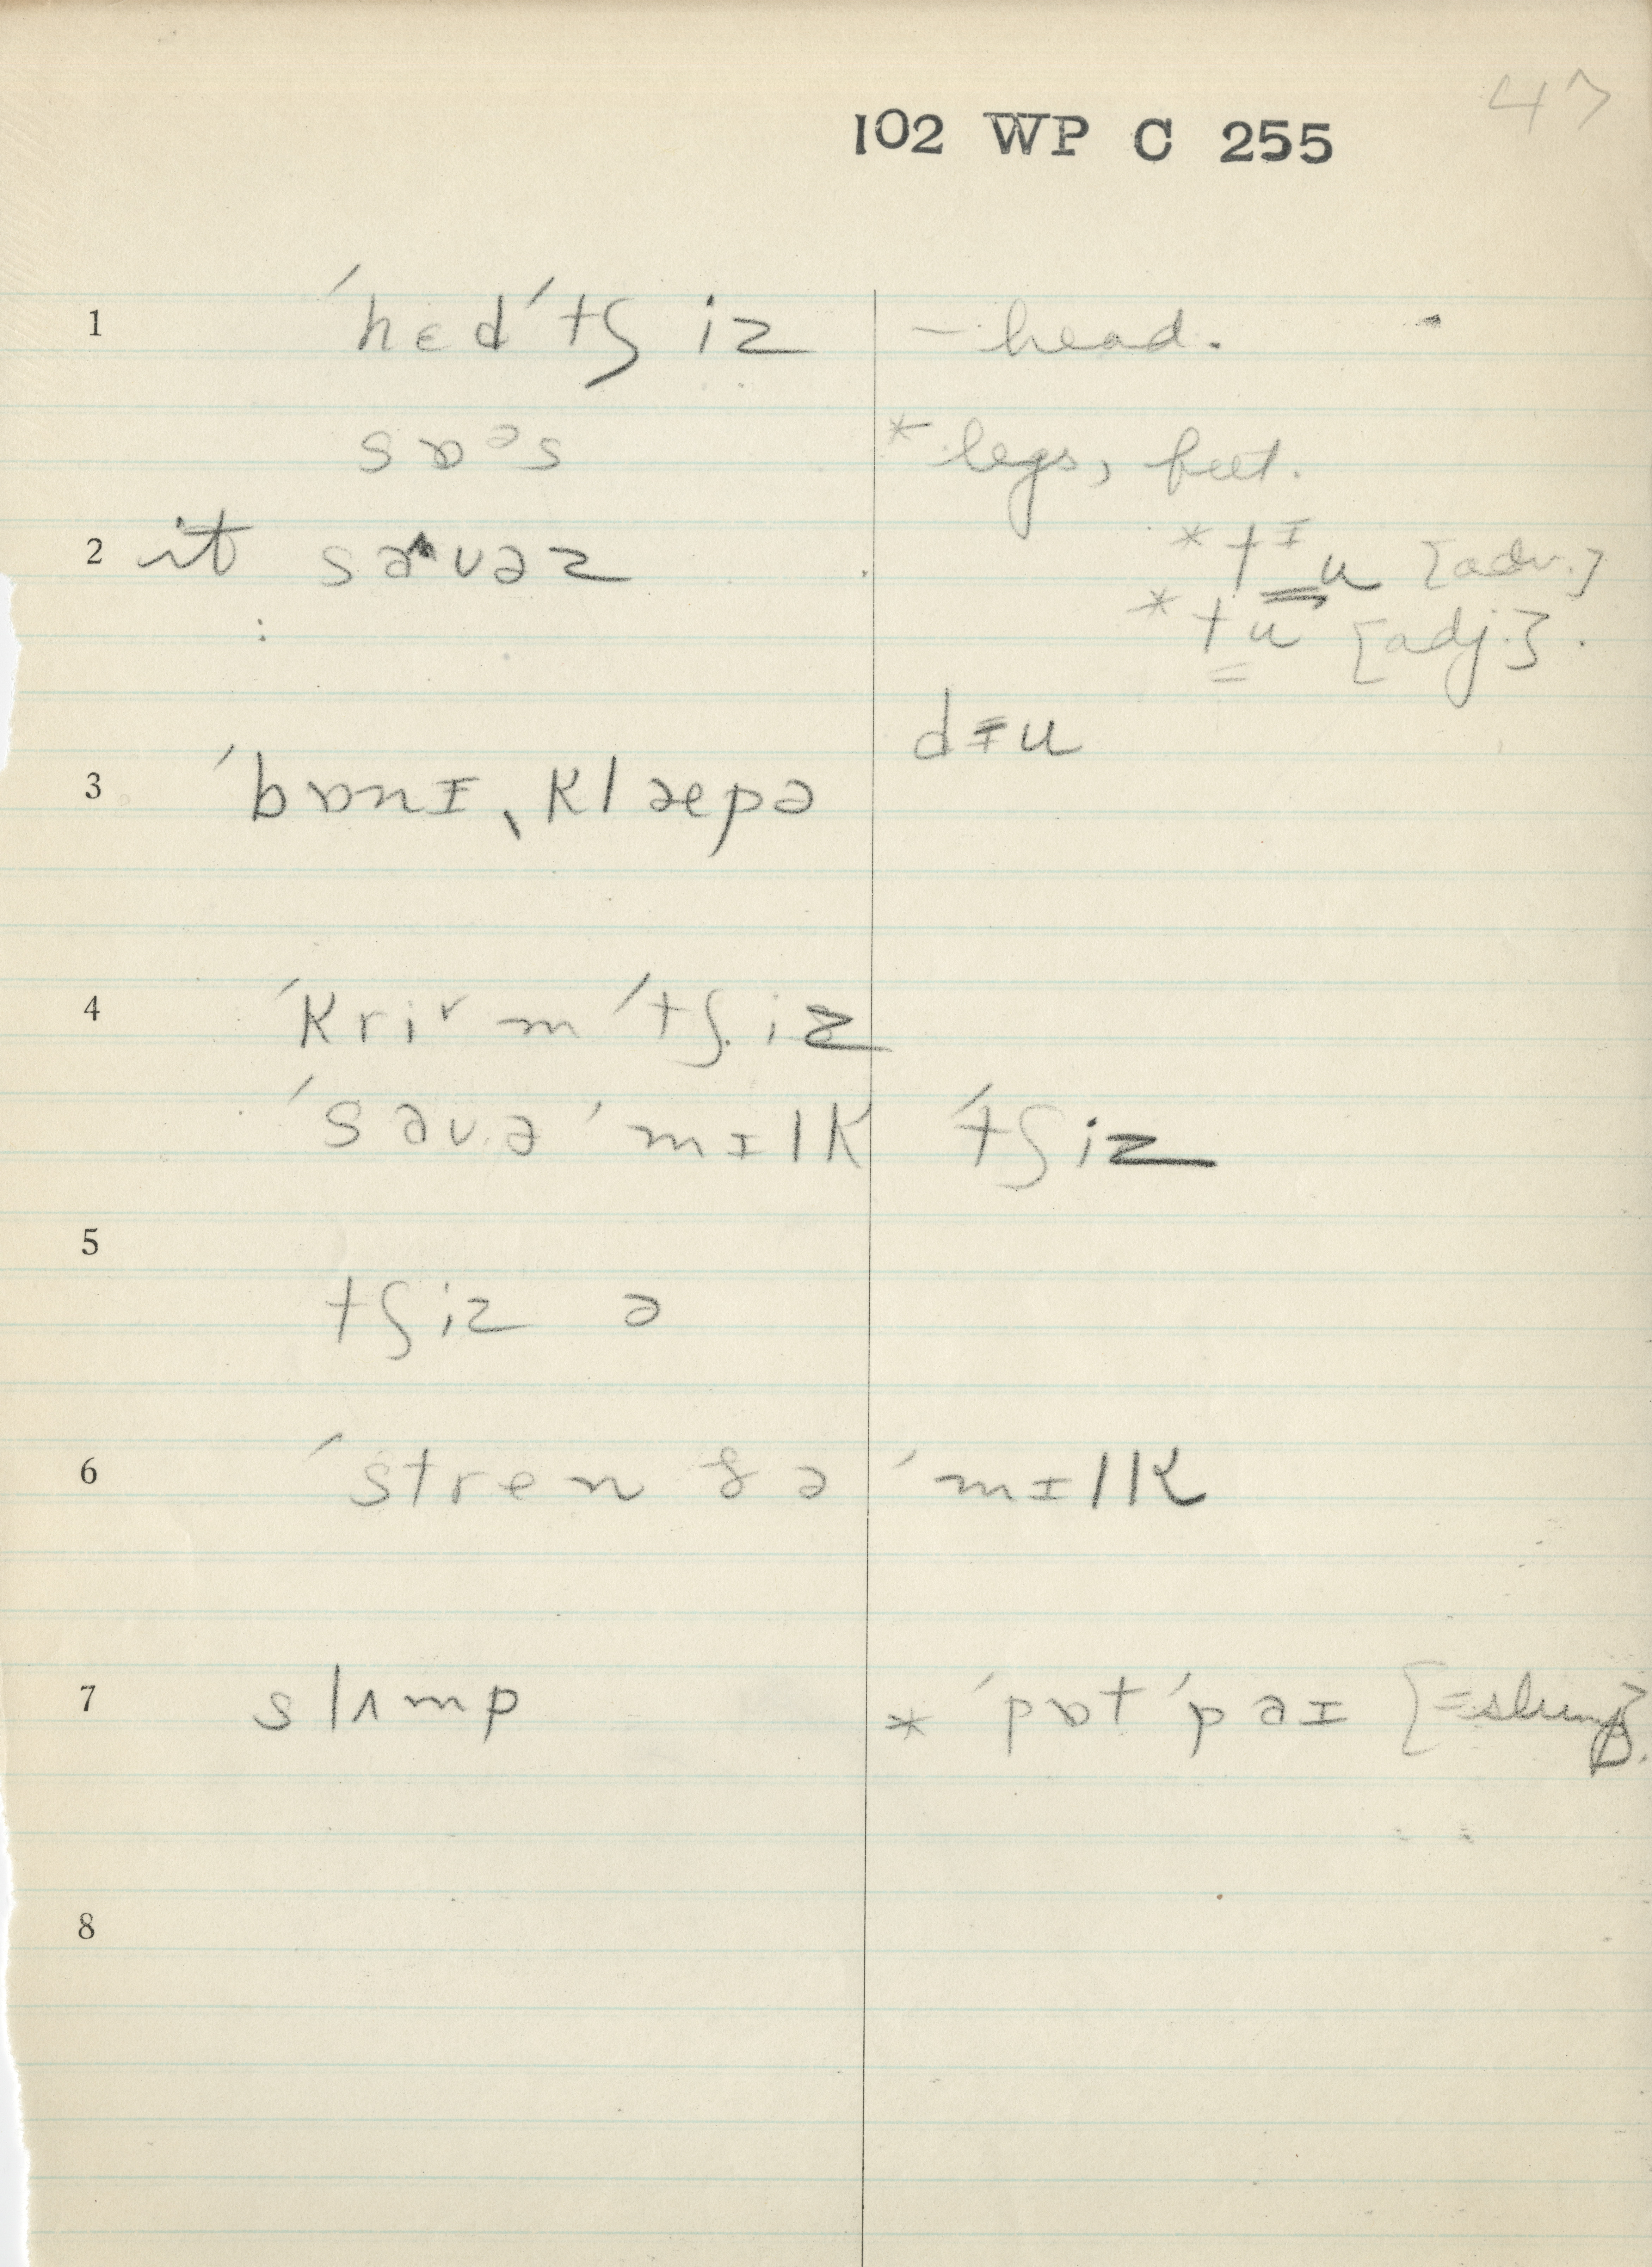 47
102 WP C 255
1 ˈhɛdˈtʃiz – head.
sɒᵊs * legs, feet.
2 it sɑʌvəz * tᶦu [adv.]
* tu [adj.].
dɪu
3 ˈbɒnɪˌklæpə
4 ˈkriᵛmˈtʃiz
ˈsɑvəˈmɪlk ˈtʃiz
5
tʃiz ə
6 ˈstren ðəˈmɪlk
7 slʌmp * ˈpɒtˈpəɪ [=slump].
8